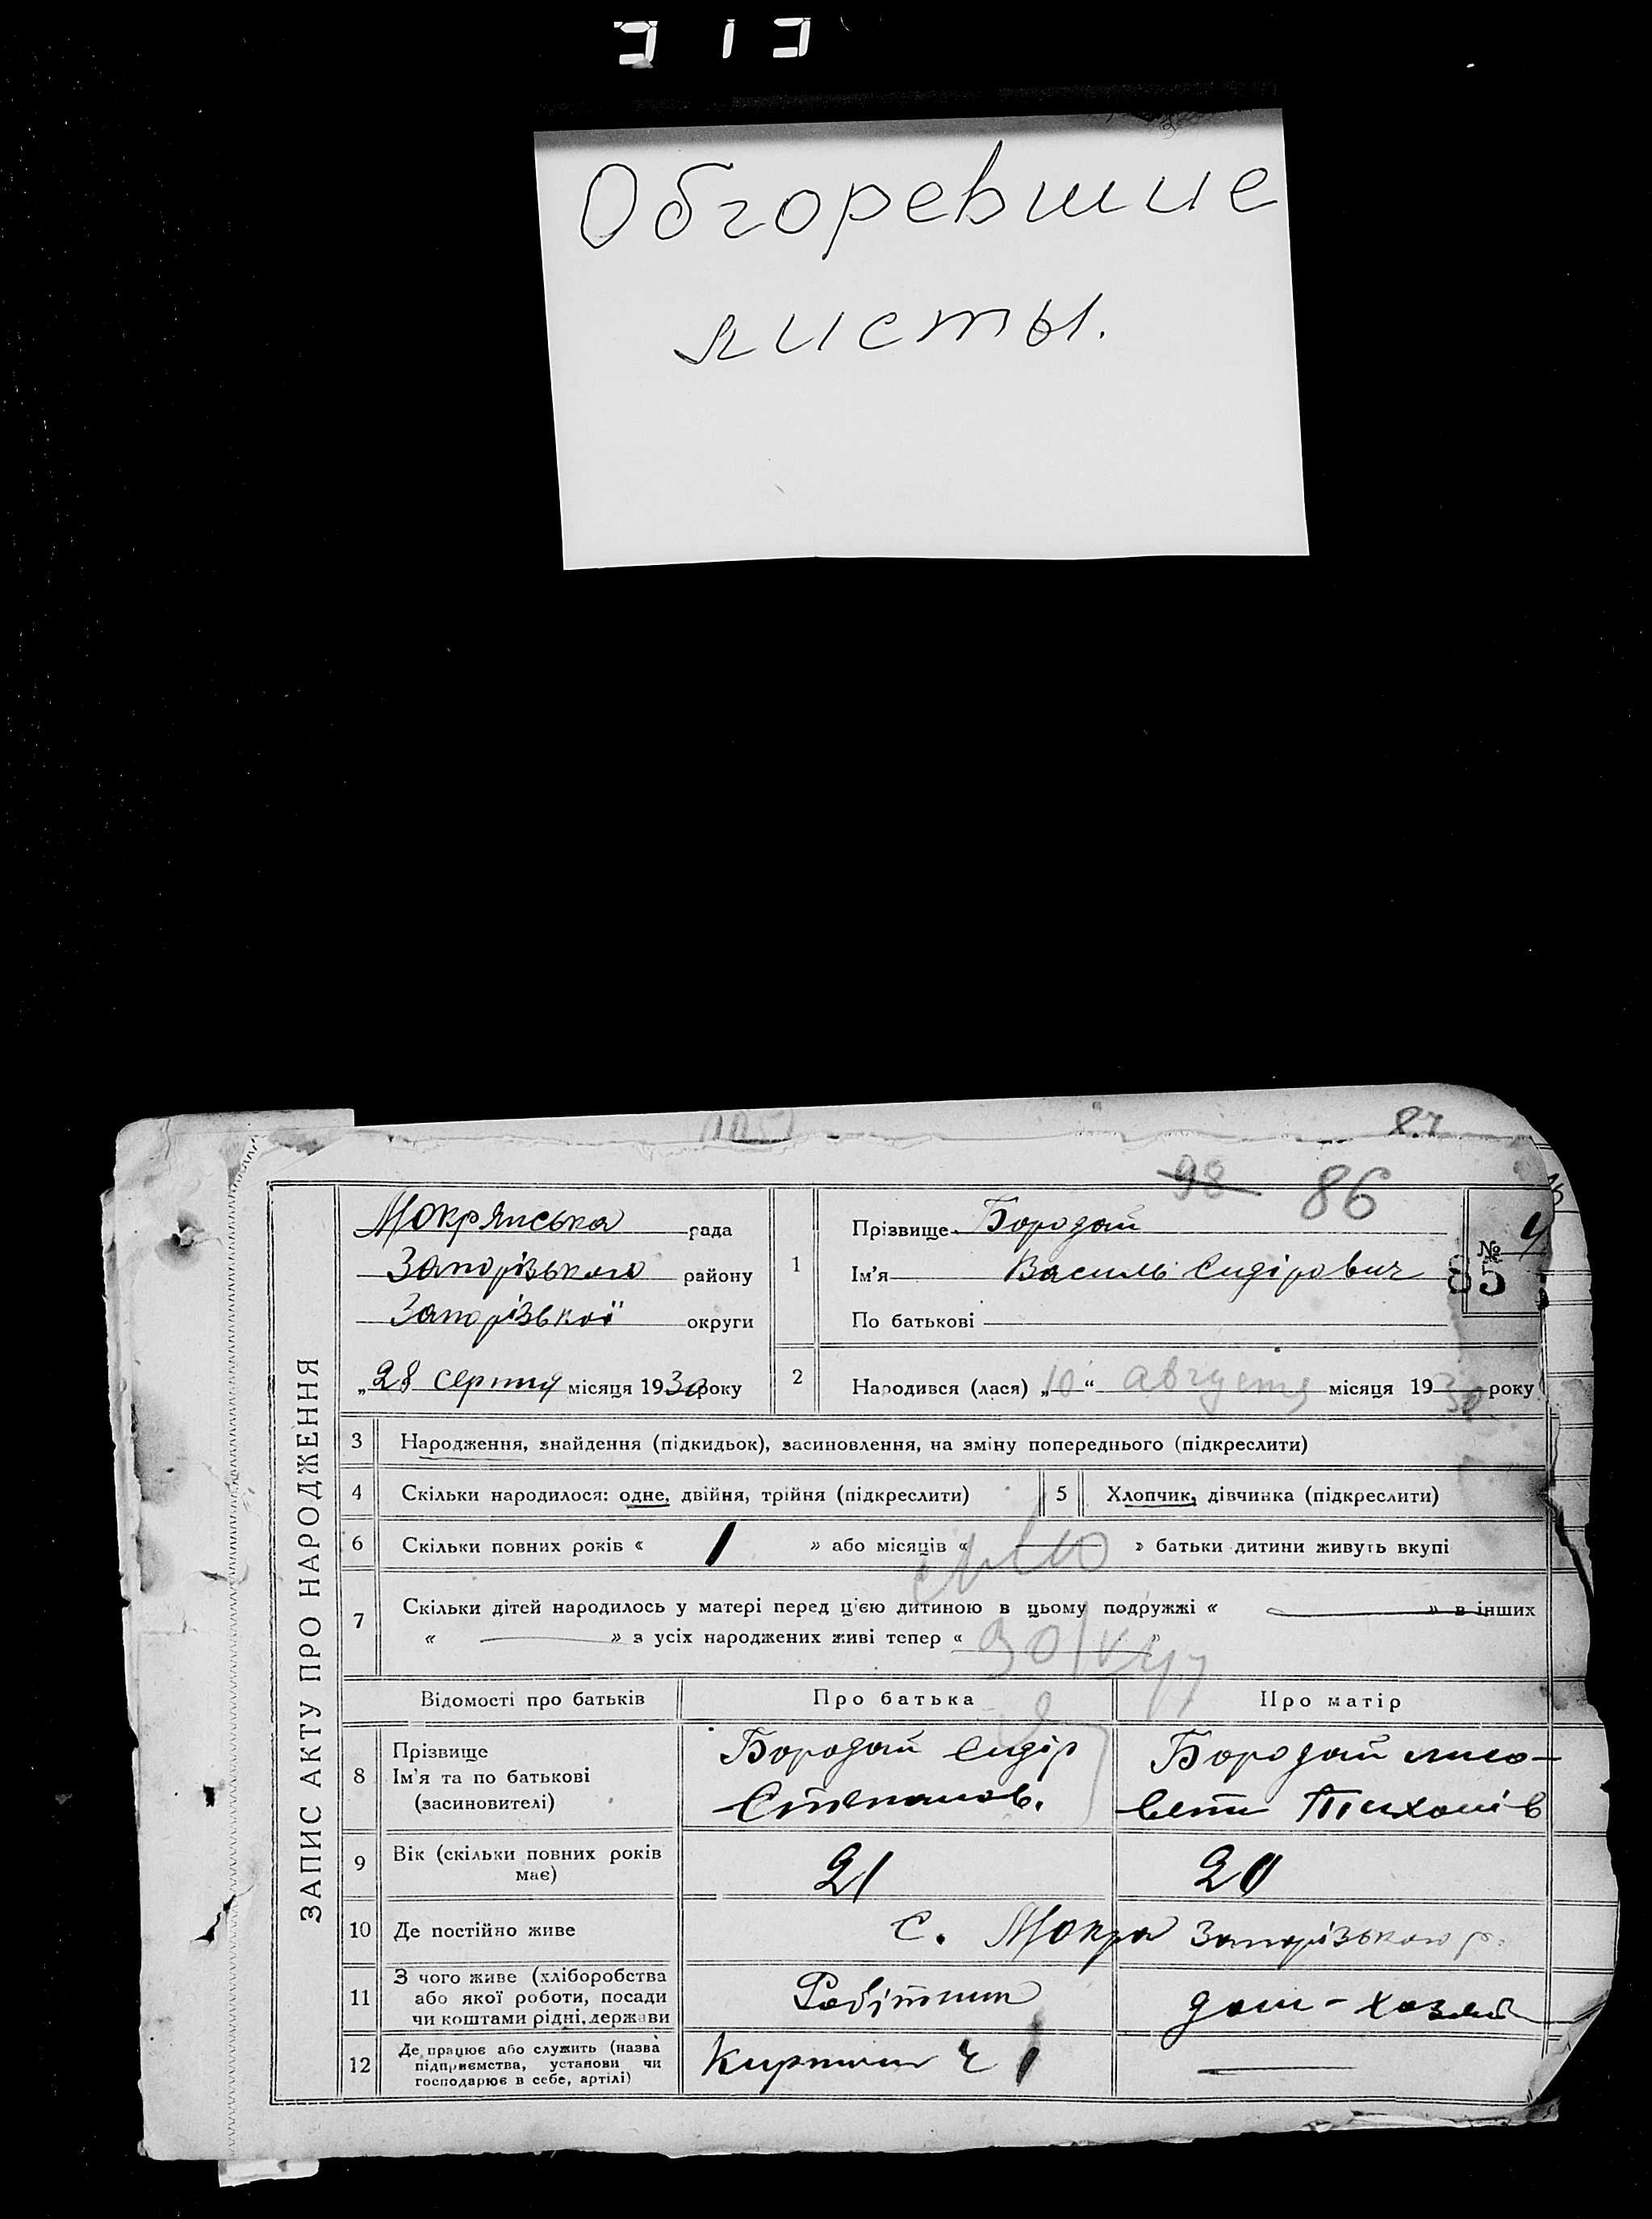 Обгоревшие
листы.
87
98 86
ЗАПИС АКТУ ПРО НАРОДЖЕННЯ
Мокрянська рада
Запорізького району
Запорізької округи
„28 серпня місяця 1930 року
1 Прізвище Бородай
Ім'я Василь Сидірович
По батькові
№ 4
85
2 Народився (лася) „10“ августа місяця 1930 року
3 Народження, знайдення (підкидьок), засиновлення, на зміну попереднього (підкреслити)
4 Скільки народилося: одне, двійня, трійня (підкреслити) 5 Хлопчик, дівчинка (підкреслити)
6 Скільки повних років « 1 » або місяців « — » батьки дитини живуть вкупі
7 Скільки дітей народилось у матері перед цією дитиною в цьому подружжі « — » в інших
« — » з усіх народжених живі тепер « »
Відомості про батьків Про батька Про матір
8 Прізвище
Ім'я та по батькові
(засиновителі)
Бородай Сидір
Степанов.
Бородай лисо-
вета Тихонів
9 Вік (скільки повних років
має)
21 20
10 Де постійно живе с. Мокра Запорізького р.
11 З чого живе (хліборобства
або якої роботи, посади
чи коштами рідні, держави
Робітник дом-хозяй
12 Де працює або служить (назва
підприємства, установи чи
господарює в себе, артілі)
Кирпични ч 1 —